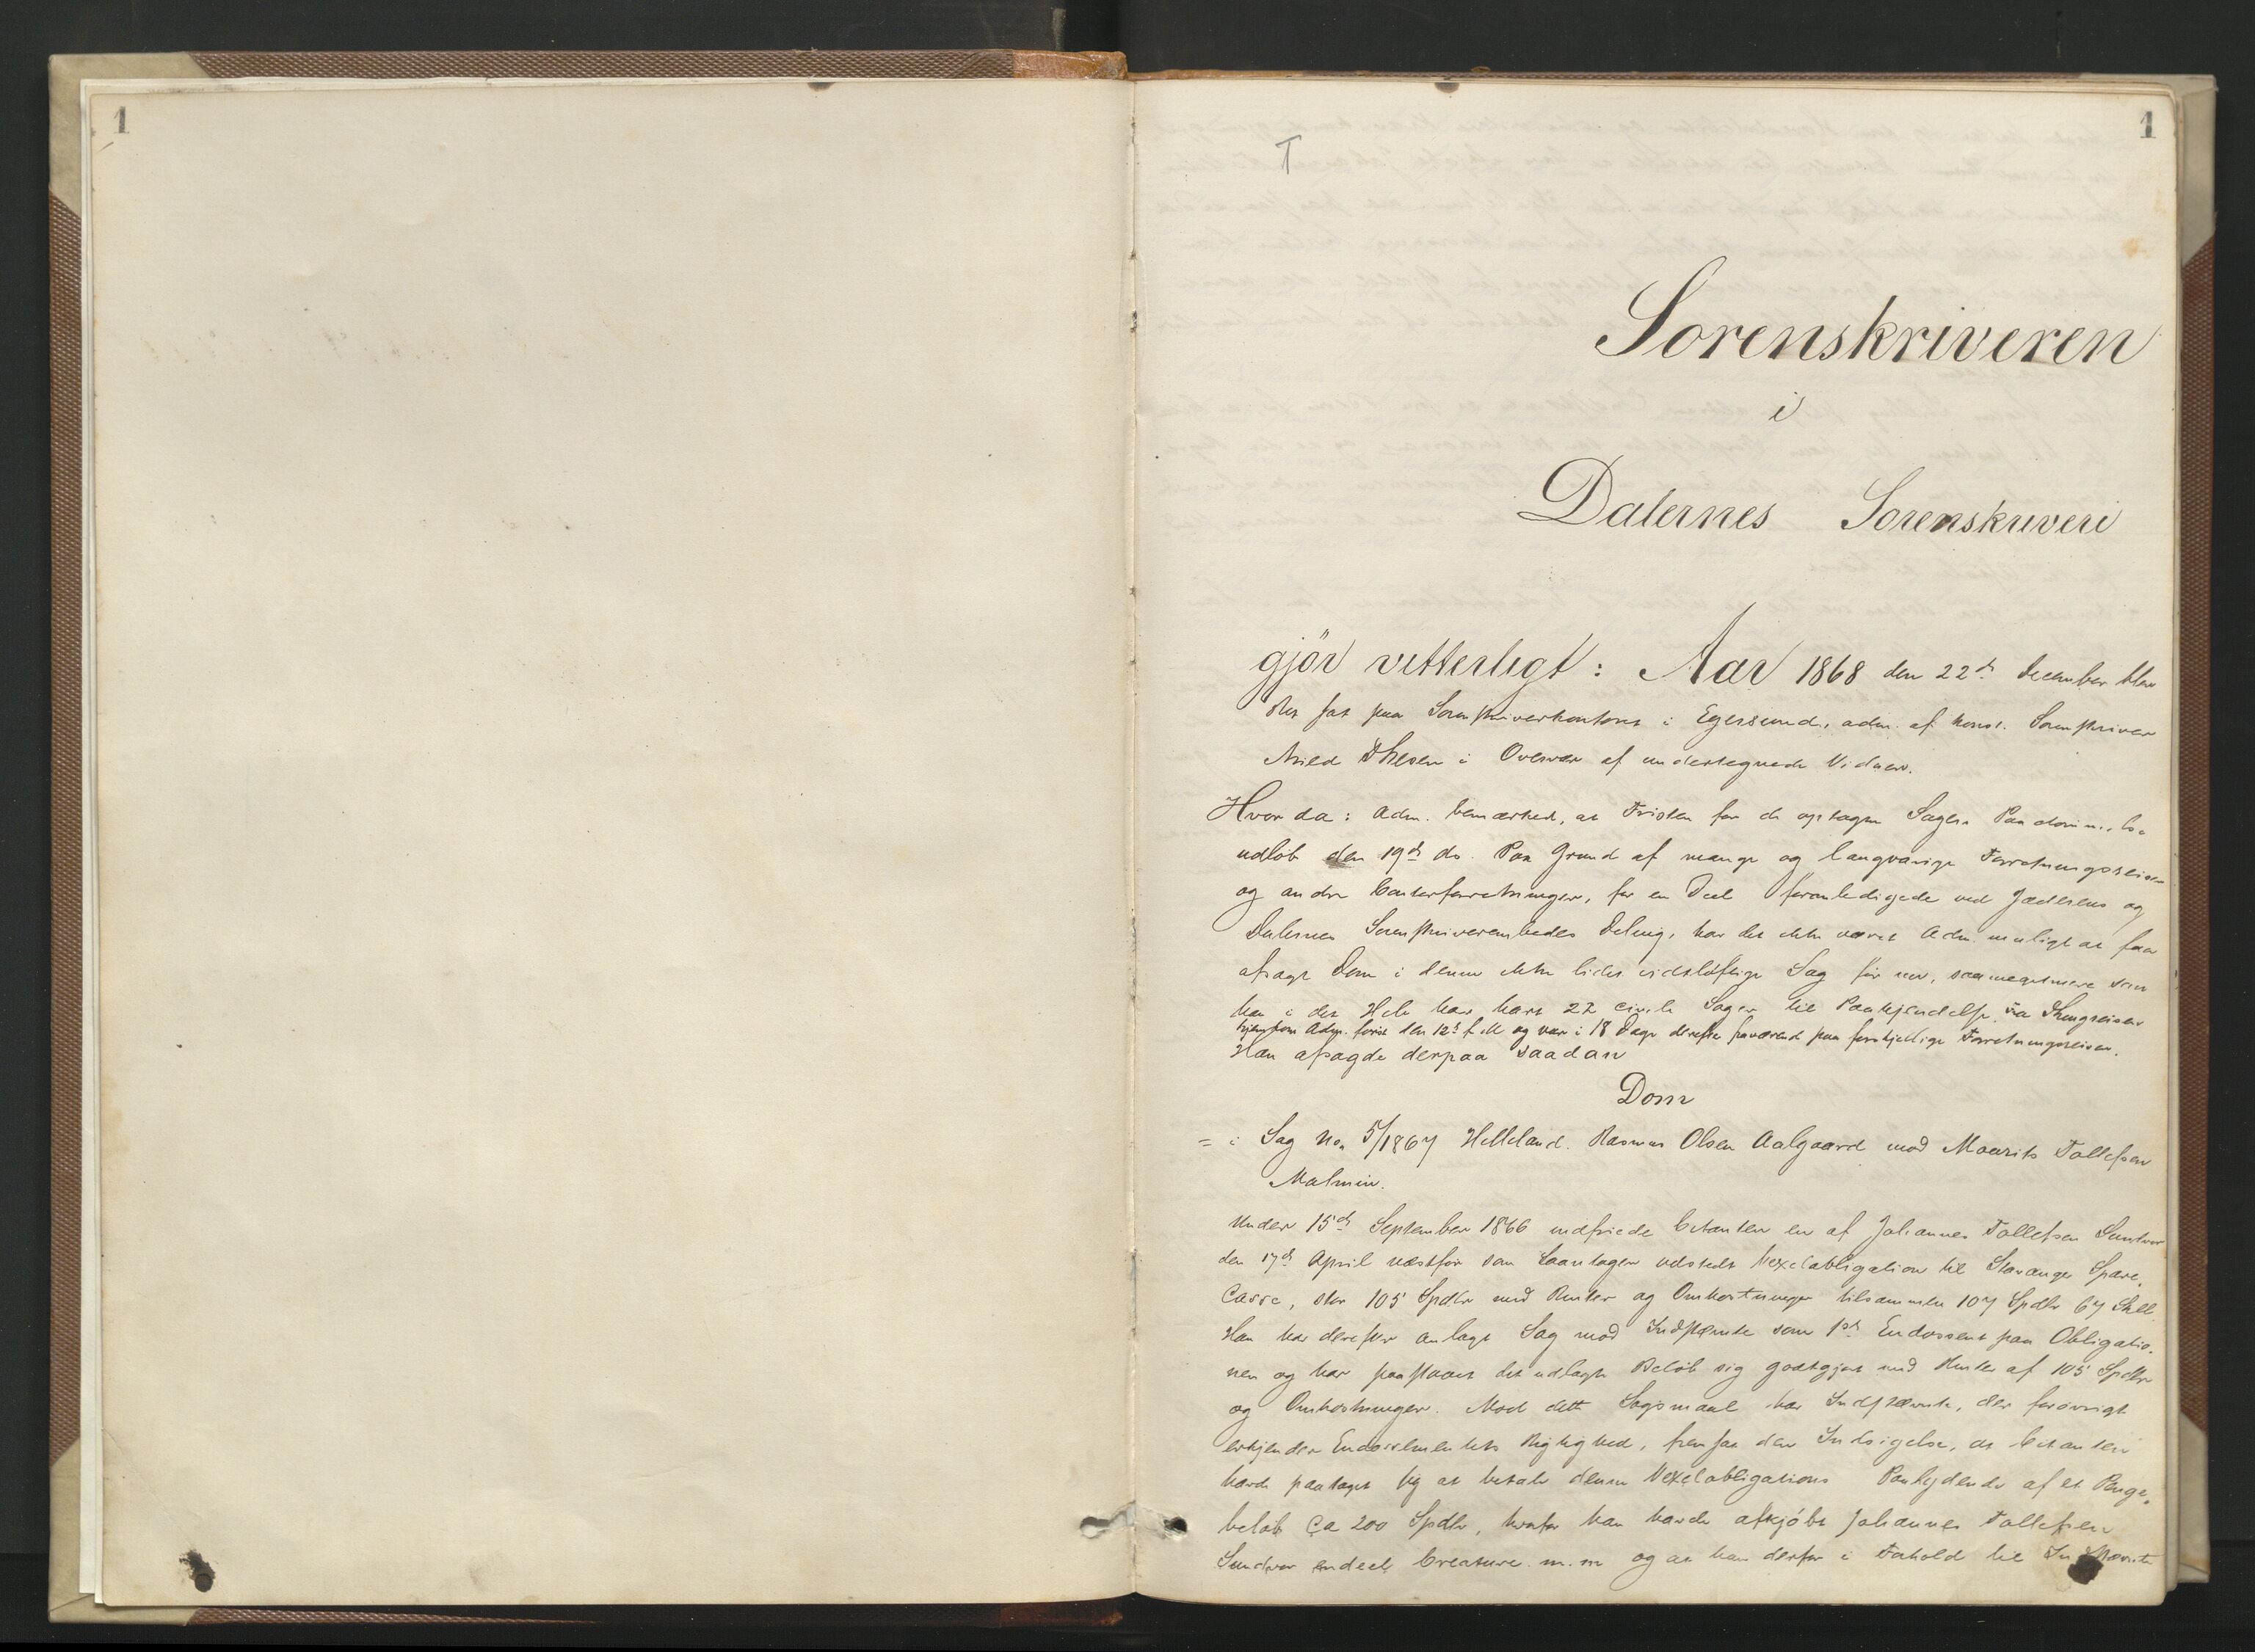 1
1
T
Sorenskriveren
i
Dalernes Sorenskriveri
gjör vitterligt: Aar 1868 den 22de December blev
Ret sat paa Sorenskriverkontoret i Egersund, adm. af const. Sorenskriver
i Overvær af undertegnede Vidner.
Hvor da: Adm. bemærked, at Fristen for de optagne Sagers Paadømmelse
udløb den 19de ds. Paa Grund af mange og langvarige Forretningsreiser
og andre Contorforretninger, for en Deel foranledigede ved Jæderens og
Dalernes Sorenskriverembedes Deling, har det ikke været Adm. muligt at faa
afsagt Dom i denne ikke lidet vidtløftige Sag før nu, saameget mere som
han i det Hele har havt 22 civile Sager til Paakjendelse. Fra Thingreisen
hjemkom Adm. først den 12te f. M og var i 18 Dage derefter fraværende paa forskjellige Forretningsreiser.
Han afsagde derpaa saadan
Dom
= i Sag No. 5/1867 Helleland. Rasmus Olsen Aalgaard mod Maurits Tollefsen
Malmin.
Under 15de September 1866 indfriede Citanten en af Johannes Tollefsen
den 17de April næstfør som Laantager udstedt Vexelobligation til Stavanger Spare-
Casse, stor 105 Spdlr med Renter og Omkostninger tilsammen 107 Spdlr 67 Skill
Han har derefter anlagt Sag mod Indstævnte som 1ste Endossent paa Obligatio-
nen og har paastaaet det udlagte Beløb sig godtgjort med Renter af 105 Spdlr
og Omkostninger. Mod dette Søgsmaal har Indstævnte, der forøvrigt
erkjender Endossementets Rigtighed, fremsat den Indsigelse, at Citanten
havde paataget sig at betale denne Vexelobligations Paalydende af et Penge-
beløb Ca 200 Spdlr, hvorfor han havde afkjøbt Johannes Tollefsen
endeel Creature m.m og at han derfor i Forhold til Indstævnte